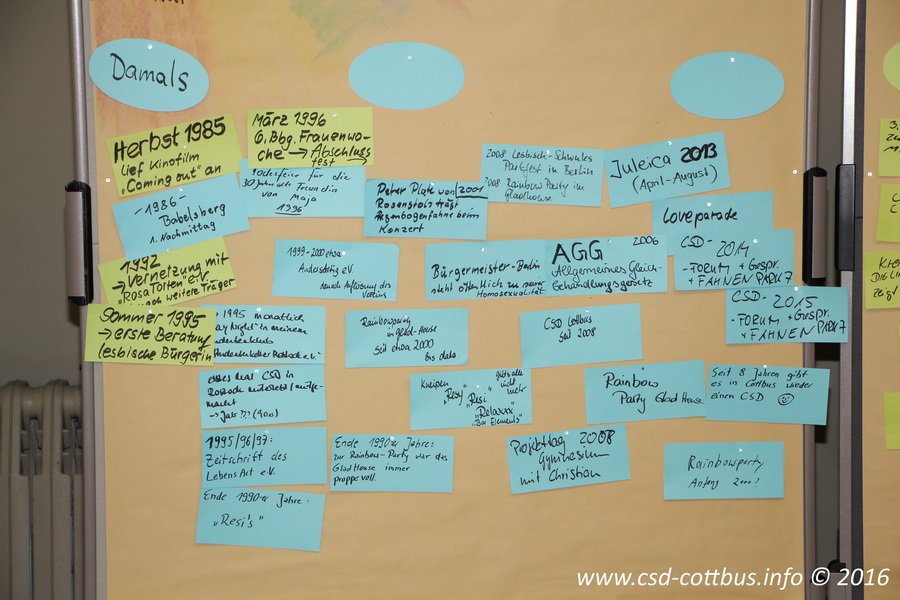 Damals
Herbst 1985
lief Kinofilm
"Coming out" an
März 1996
6. Bbg. Frauenwo-
che → Abschluss
fest
-1986-
Babelsberg
1. Nachmittag
30 Jahre alte Freundin
von Maja
1996
Peter Plate von 2001
Rosenstolz trägt
Regenbogenfahne beim
Konzert
2008 Lesbisch-Schwules
Parkfest in Berlin
2008 Rainbow Party im
Gladhouse
Juleica 2013
(April-August)
Loveparade
1992
→ Vernetzung mit
"Rosa Torten" e.V.
noch weitere Träger
1999-2000 etwa
Andersartig e.V.
danach Auflösung des
Vereins
Bürgermeister-Berlin
steht öffentlich zu seiner
Homosexualität
AGG 2006
Allgemeines Gleich-
behandlungsgesetz
CSD-2014
-FORUM + Gospr.
+ FAHNEN PARK 7
CSD-2015
-FORUM + Gospr.
+ FAHNEN PARK 7
Sommer 1995
→ erste Beratung
lesbische Bürgerin
1995 monatlich
in meinem
e.V."
Rainbowparty
in Glad-House
seit etwa 2000
bis dato
CSD Cottbus
seit 2008
erstes mal CSD in
Rostock miterlebt/mitge-
macht
→ Jahr ?? (90er)
Kneipen gibts alle
"Resy" nicht
"Resi" mehr
"Relaxxx"
"Bar Elements"
Rainbow
Party Glad House
Seit 8 Jahren gibt
es in Cottbus wieder
einen CSD ☺
1995/96/97:
Zeitschrift des
LebensArt e.V.
Ende 1990-er Jahre:
zur Rainbow-Party war das
Glad House immer
proppevoll.
Projekttag 2008
Gymnasium
mit Christian
Rainbowparty
Anfang 2000?
Ende 1990-er Jahre:
"Resi's"
www.csd-cottbus.info © 2016